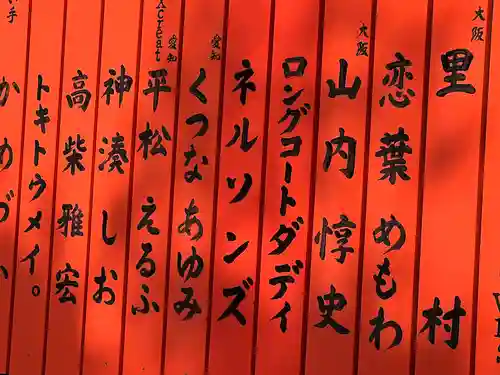 大阪
里村
恋葉めもわ
大阪
山内惇史
ロングコートダディ
ネルソンズ
愛知
くつなあゆみ
愛知
平松えるふ
Xcreat
神湊しお
高柴雅宏
トキトウメイ。
手
かめづか